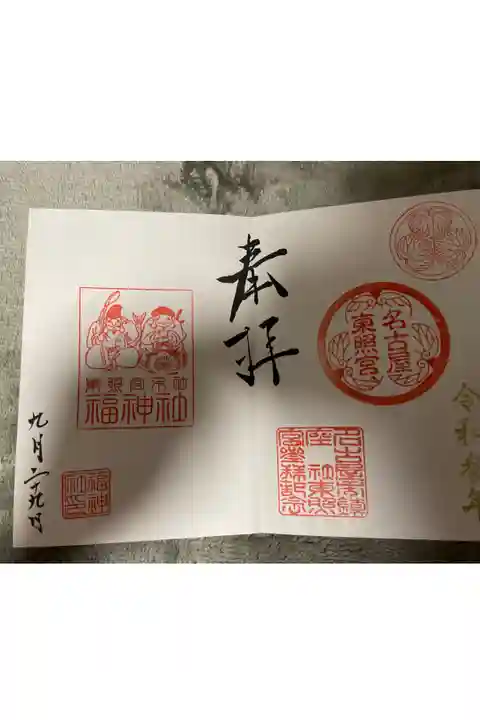 奉拝
名古屋
東照宮
令和
名古屋
東照
宮
東照宮末社
福神社
福神
社
九月二十九日